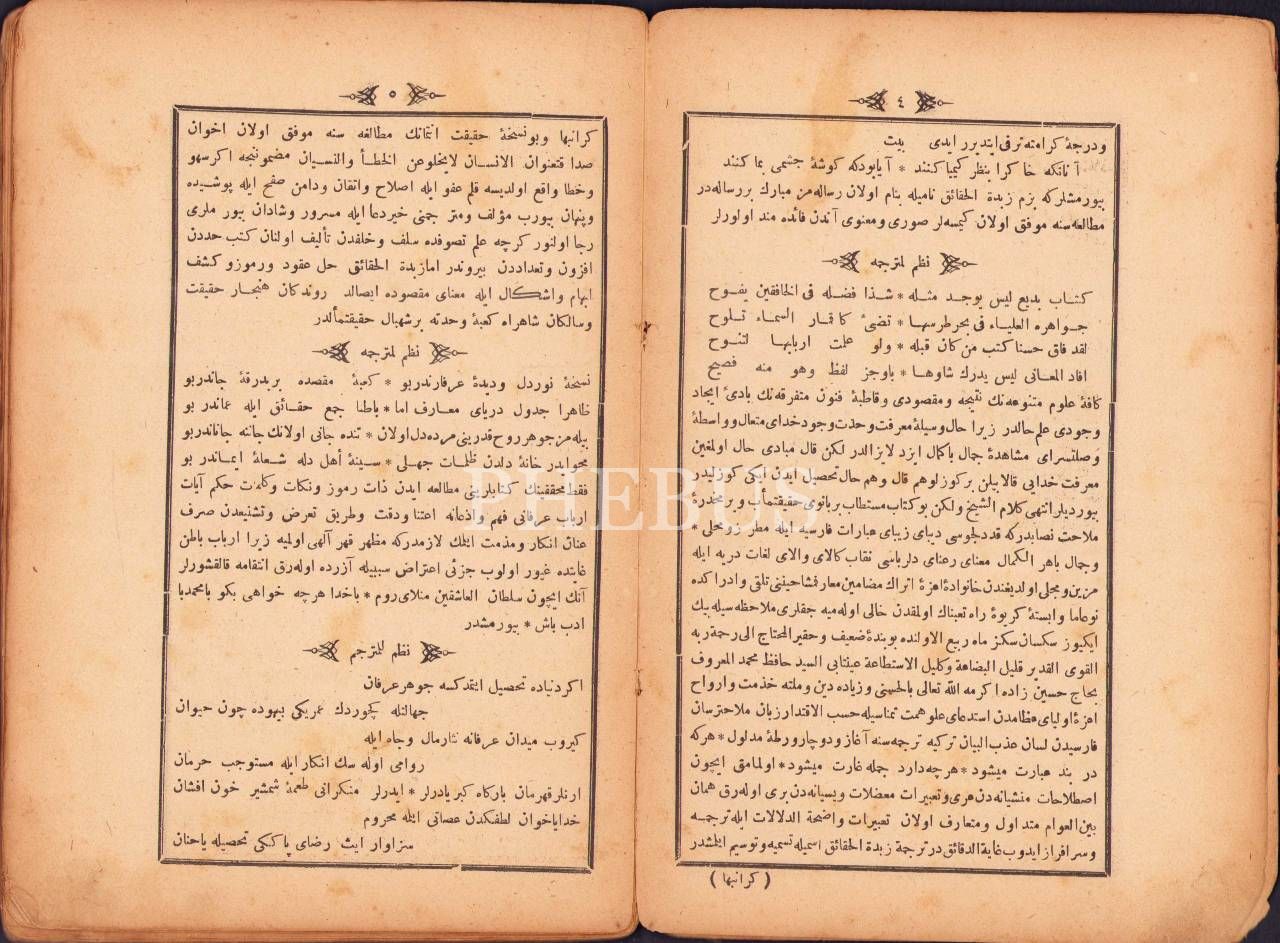 ٤
ودرجهٔ كرامنه ترقی ایتدیرر ایدی بیت
آنانكه خاك را بنظر كیمیا كنند * آیا بودكه كوشهٔ چشمی بما كنند
بیورمشلركه بزم زبدة الحقائق نامیله بنام اولان رساله من مبارك بر رساله در
مطالعه سنه موفق اولان كیمسه لر صوری ومعنوی آندن فائده مند اولورلر
نظم لمترجمه
كتاب بدیع لیس یوجد مثله * شذا فضله فی الخافقین یفوح
جواهره العلیاء فی بحر طرسها * تضیء كاقمار السماء تلوح
لقد فاق حسنا كتب من كان قبله * ولو علمت اربابها لتنوح
افاد المعانی لیس یدرك شاوها * باوجز لفظ وهو منه فصیح
كافهٔ علوم متنوعه نك نتیجه ومقصودی وقاطبهٔ فنون متفرقه نك بادئ ایجاد
وجودی علم حالدر زیرا حال وسیلهٔ معرفت وحدت وجود خدای متعال وواسطهٔ
وصلتسرای مشاهدهٔ جمال باكمال ایزد لایزالدر لكن قال مبادی حال اولمغین
معرفت خدایی قالا بیلن بر كوزلو هم قال وهم حال تحصیل ایدن ایكی كوزلیدر
بیوردیلر انتهی كلام الشیخ ولكن بو كتاب مستطاب بر بانوی حقیقتمآب وبر مخدرهٔ
ملاحت نصابدركه قد دلجوسی دیبای زیبای عبارات فارسیه ایله مطرز ومحلی *
وجمال باهر الكمال معنای رعنای دلرباسی نقاب كالای والای لغات دریه ایله
مزین ومجلی اولدیغندن خانوادهٔ اعزهٔ اتراك مضامین معارفمشاحیننی تلقی وادراكده
نوعاما وابستهٔ كریوهٔ راه تعبناك اولمقدن خالی اوله میه جقلری ملاحظه سیله بیك
ایكیوز سكسان سكز ماه ربیع الاولنده بو بندهٔ ضعیف وحقیر المحتاج الی رحمة ربه
القوی القدیر قلیل البضاعه وكلیل الاستطاعة عینتابی السید حافظ محمد المعروف
بحاج حسین زاده اكرمه الله تعالی بالحسنی وزیاده دین وملته خدمت وارواح
اعزهٔ اولیای عظامدن استدعای علو همت تمناسیله حسب الاقتدار زبان ملاحترسان
فارسیدن لسان عذب البیان تركیه ترجمه سنه آغاز ودوچار ورطهٔ مدلول * هركه
در بند عبارت میشود * هرچه دارد جمله غارت میشود * اولمامق ایچون
اصطلاحات منشیانه دن عری وتعبیرات معضلات وبسیانه دن بری اوله رق همان
بین العوام متداول ومتعارف اولان تعبیرات واضحة الدلالات ایله ترجمه
وسرافراز ایدوب غایة الدقائق در ترجمهٔ زبدة الحقائق اسمیله تسمیه وتوسیم ایلمشدر
(كرانبها)
٥
كرانبها وبو نسخهٔ حقیقت انتمانك مطالعه سنه موفق اولان اخوان
صداقتعنوان الانسان لایخلو عن الخطأ والنسیان مضموننجه اكر سهو
وخطا واقع اولدیسه قلم عفو ایله اصلاح واتقان ودامن صفح ایله پوشیده
وپنهان بیورب مؤلف ومترجمنی خیر دعا ایله مسرور وشادان بیورملری
رجا اولنور كرچه علم تصوفده سلف وخلفدن تألیف اولنان كتب حددن
افزون وتعداددن بیروندر اما زبدة الحقائق حل عقود ورموز وكشف
ابهام واشكال ایله معنای مقصوده ایصالد روندكان هنجار حقیقت
وسالكان شاهراه كعبهٔ وحدته بر شهبال حقیقتمألدر
نظم لمترجمه
نسخهٔ نور دل ودیدهٔ عرفاندر بو * كعبهٔ مقصده بر بدرقهٔ جاندر بو
ظاهرا جدول دریای معارف اما * باطنا جمع حقائق ایله عماندر بو
بیله من جوهر روح قدرینی مرده دل اولان * تنده جانی اولانك جاننه جاناندر بو
محو ایدر خانهٔ دلدن ظلمات جهلی * سینهٔ أهل دله شعلهٔ ایماندر بو
فقط محققینك كتابلرینی مطالعه ایدن ذات رموز ونكات وكلمات حكم آیات
ارباب عرفانی فهم واذعانه اعتنا ودقت وطریق تعرض وتشنیعدن صرف
عنان انكار ومذمت ایتلك لازمدركه مظهر قهر آلهی اولمیه زیرا ارباب باطن
غایتده غیور اولوب جزئی اعتراض سببیله آزرده اوله رق انتقامه قالقشورلر
آنك ایچون سلطان العاشقین منلای روم * باخدا هرچه خواهی بكو با محمد با
ادب باش * بیورمشدر
نظم للمترجم
اكر دنیاده تحصیل ایتمدكسه جوهر عرفان
جهالتله كچوردك عمریكی بیهوده چون حیوان
كیروب میدان عرفانه نثار مال وجاه ایله
روامی اوله سك انكار ایله مستوجب حرمان
ارنلر قهرمان باركاه كبریادرلر * ایدرلر منكرانی طعمهٔ شمشیر خون افشان
خدایا خوان لطفكدن عصاتی ایله محروم
سزاوار ایت رضای پاككی تحصیله یاحنان